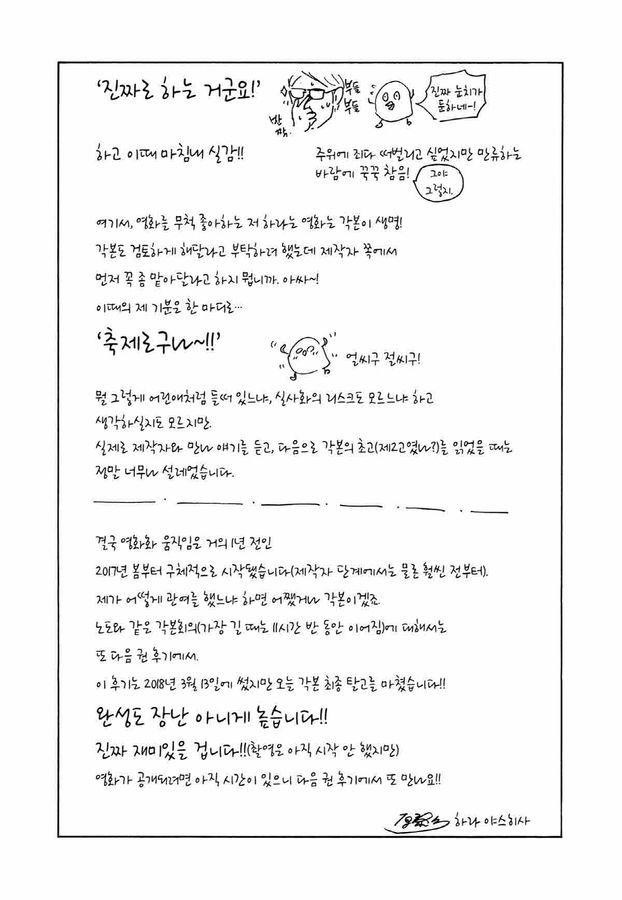 ‘진짜로 하는 거군요!’
부들
부들
반
짝
진짜 눈치가
둔하네~!
하고 이때 마침내 실감!!
주위에 죄다 떠벌리고 싶었지만 만류하는
바람에 꾹꾹 참음!
그야
그렇지.
여기서, 영화를 무척 좋아하는 저 하라는 영화는 각본이 생명!
각본도 검토하게 해달라고 부탁하려 했는데 제작자 쪽에서
먼저 꼭 좀 맡아달라고 하지 뭡니까. 아싸~!
이때의 제 기분을 한 마디로…
‘축제로구나~!!’
얼씨구 절씨구!
뭘 그렇게 어린애처럼 들떠 있느냐, 실사화의 리스크도 모르느냐 하고
생각하실지도 모르지만.
실제로 제작자와 만나 얘기를 듣고, 다음으로 각본의 초고(제2고였나?)를 읽었을 때는
정말 너무나 설레었습니다.
결국 영화화 움직임은 거의 1년 전인
2017년 봄부터 구체적으로 시작됐습니다(제작자 단계에서는 물론 훨씬 전부터).
제가 어떻게 관여를 했느냐 하면 어쨌거나 각본이겠죠.
노도와 같은 각본회의(가장 길 때는 11시간 반 동안 이어짐)에 대해서는
또 다음 권 후기에서.
이 후기는 2018년 3월 13일에 썼지만 오늘 각본 최종 탈고를 마쳤습니다!!
완성도 장난 아니게 높습니다!!
진짜 재미있을 겁니다!!(촬영은 아직 시작 안 했지만)
영화가 공개되려면 아직 시간이 있으니 다음 권 후기에서 또 만나요!!
하라 야스히사